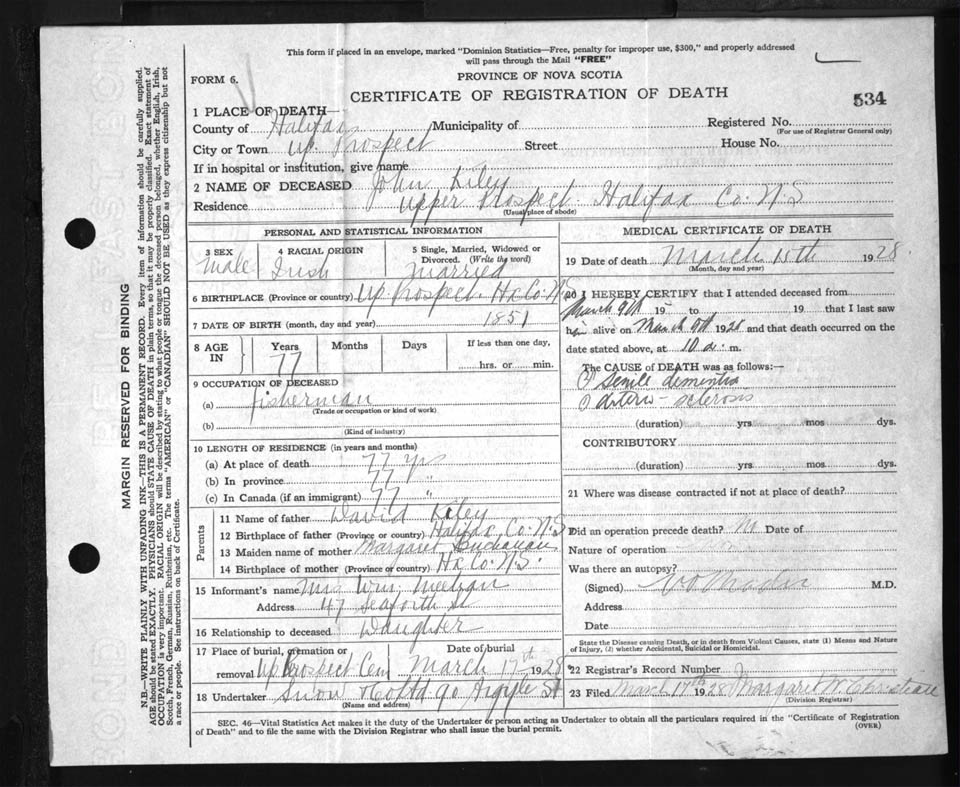 This form if placed in an envelope, marked "Dominion Statistics—Free, penalty for improper use, $300," and properly addressed
will pass through the Mail "FREE"
FORM 6.
PROVINCE OF NOVA SCOTIA
CERTIFICATE OF REGISTRATION OF DEATH
534
1 PLACE OF DEATH—
County of Halifax Municipality of Registered No.
(For use of Registrar General only)
City or Town Up. Prospect Street House No.
If in hospital or institution, give name
2 NAME OF DECEASED John Kiley
Residence Upper Prospect Halifax Co. N.S
(Usual place of abode)
PERSONAL AND STATISTICAL INFORMATION
3 SEX Male
4 RACIAL ORIGIN Irish
5 Single, Married, Widowed or Divorced. (Write the word) Married
6 BIRTHPLACE (Province or country) Up Prospect. Hx Co. N.S
7 DATE OF BIRTH (month, day and year) 1851
8 AGE IN Years Months Days If less than one day,
77 hrs. or min.
9 OCCUPATION OF DECEASED
(a) fisherman
(Trade or occupation or kind of work)
(b)
(Kind of industry)
10 LENGTH OF RESIDENCE (in years and months)
(a) At place of death 77 yrs
(b) In province 77 "
(c) In Canada (if an immigrant) 77 "
Parents
11 Name of father David Kiley
12 Birthplace of father (Province or country) Halifax Co. N.S
13 Maiden name of mother Margaret Buchanan
14 Birthplace of mother (Province or country) Hx Co. N.S.
15 Informant's name Mrs Wm.
Address 47 Seaforth St
16 Relationship to deceased Daughter
17 Place of burial, cremation or Date of burial
removal Up Prospect Cem March 17th 1928
18 Undertaker Snow & Co Ltd 90 Argyle St
(Name and address)
MEDICAL CERTIFICATE OF DEATH
19 Date of death March 15th 1928
(Month, day and year)
20 I HEREBY CERTIFY that I attended deceased from
March 9th 19 to 19 that I last saw
him alive on March 9th 1928 and that death occurred on the
date stated above, at 10 a. m.
The CAUSE of DEATH was as follows:—
Senile dementia
Arterio-sclerosis
(duration) yrs mos dys.
CONTRIBUTORY
(duration) yrs mos dys.
21 Where was disease contracted if not at place of death?
Did an operation precede death? No Date of
Nature of operation
Was there an autopsy?
(Signed) M.D.
Address
Date
State the Disease causing Death, or in death from Violent Causes, state (1) Means and Nature
of Injury, (2) whether Accidental, Suicidal or Homicidal.
22 Registrar's Record Number
23 Filed March 17th 1928 Margaret W. Christian
(Division Registrar)
SEC. 46—Vital Statistics Act makes it the duty of the Undertaker or person acting as Undertaker to obtain all the particulars required in the "Certificate of Registration
of Death" and to file the same with the Division Registrar who shall issue the burial permit.
(OVER)
MARGIN RESERVED FOR BINDING
N.B.—WRITE PLAINLY WITH UNFADING INK—THIS IS A PERMANENT RECORD. Every item of information should be carefully supplied.
AGE should be stated EXACTLY. PHYSICIANS should STATE CAUSE OF DEATH in plain terms, so that it may be properly classified. Exact statement of
OCCUPATION is very important. RACIAL ORIGIN will be described by stating to what people or tongue the deceased person belonged, whether English, Irish,
Scotch, French, German, Russian, Ruthenian, etc. The terms "AMERICAN" or "CANADIAN" SHOULD NOT BE USED as they express citizenship but not
a race or people. See instructions on back of Certificate.